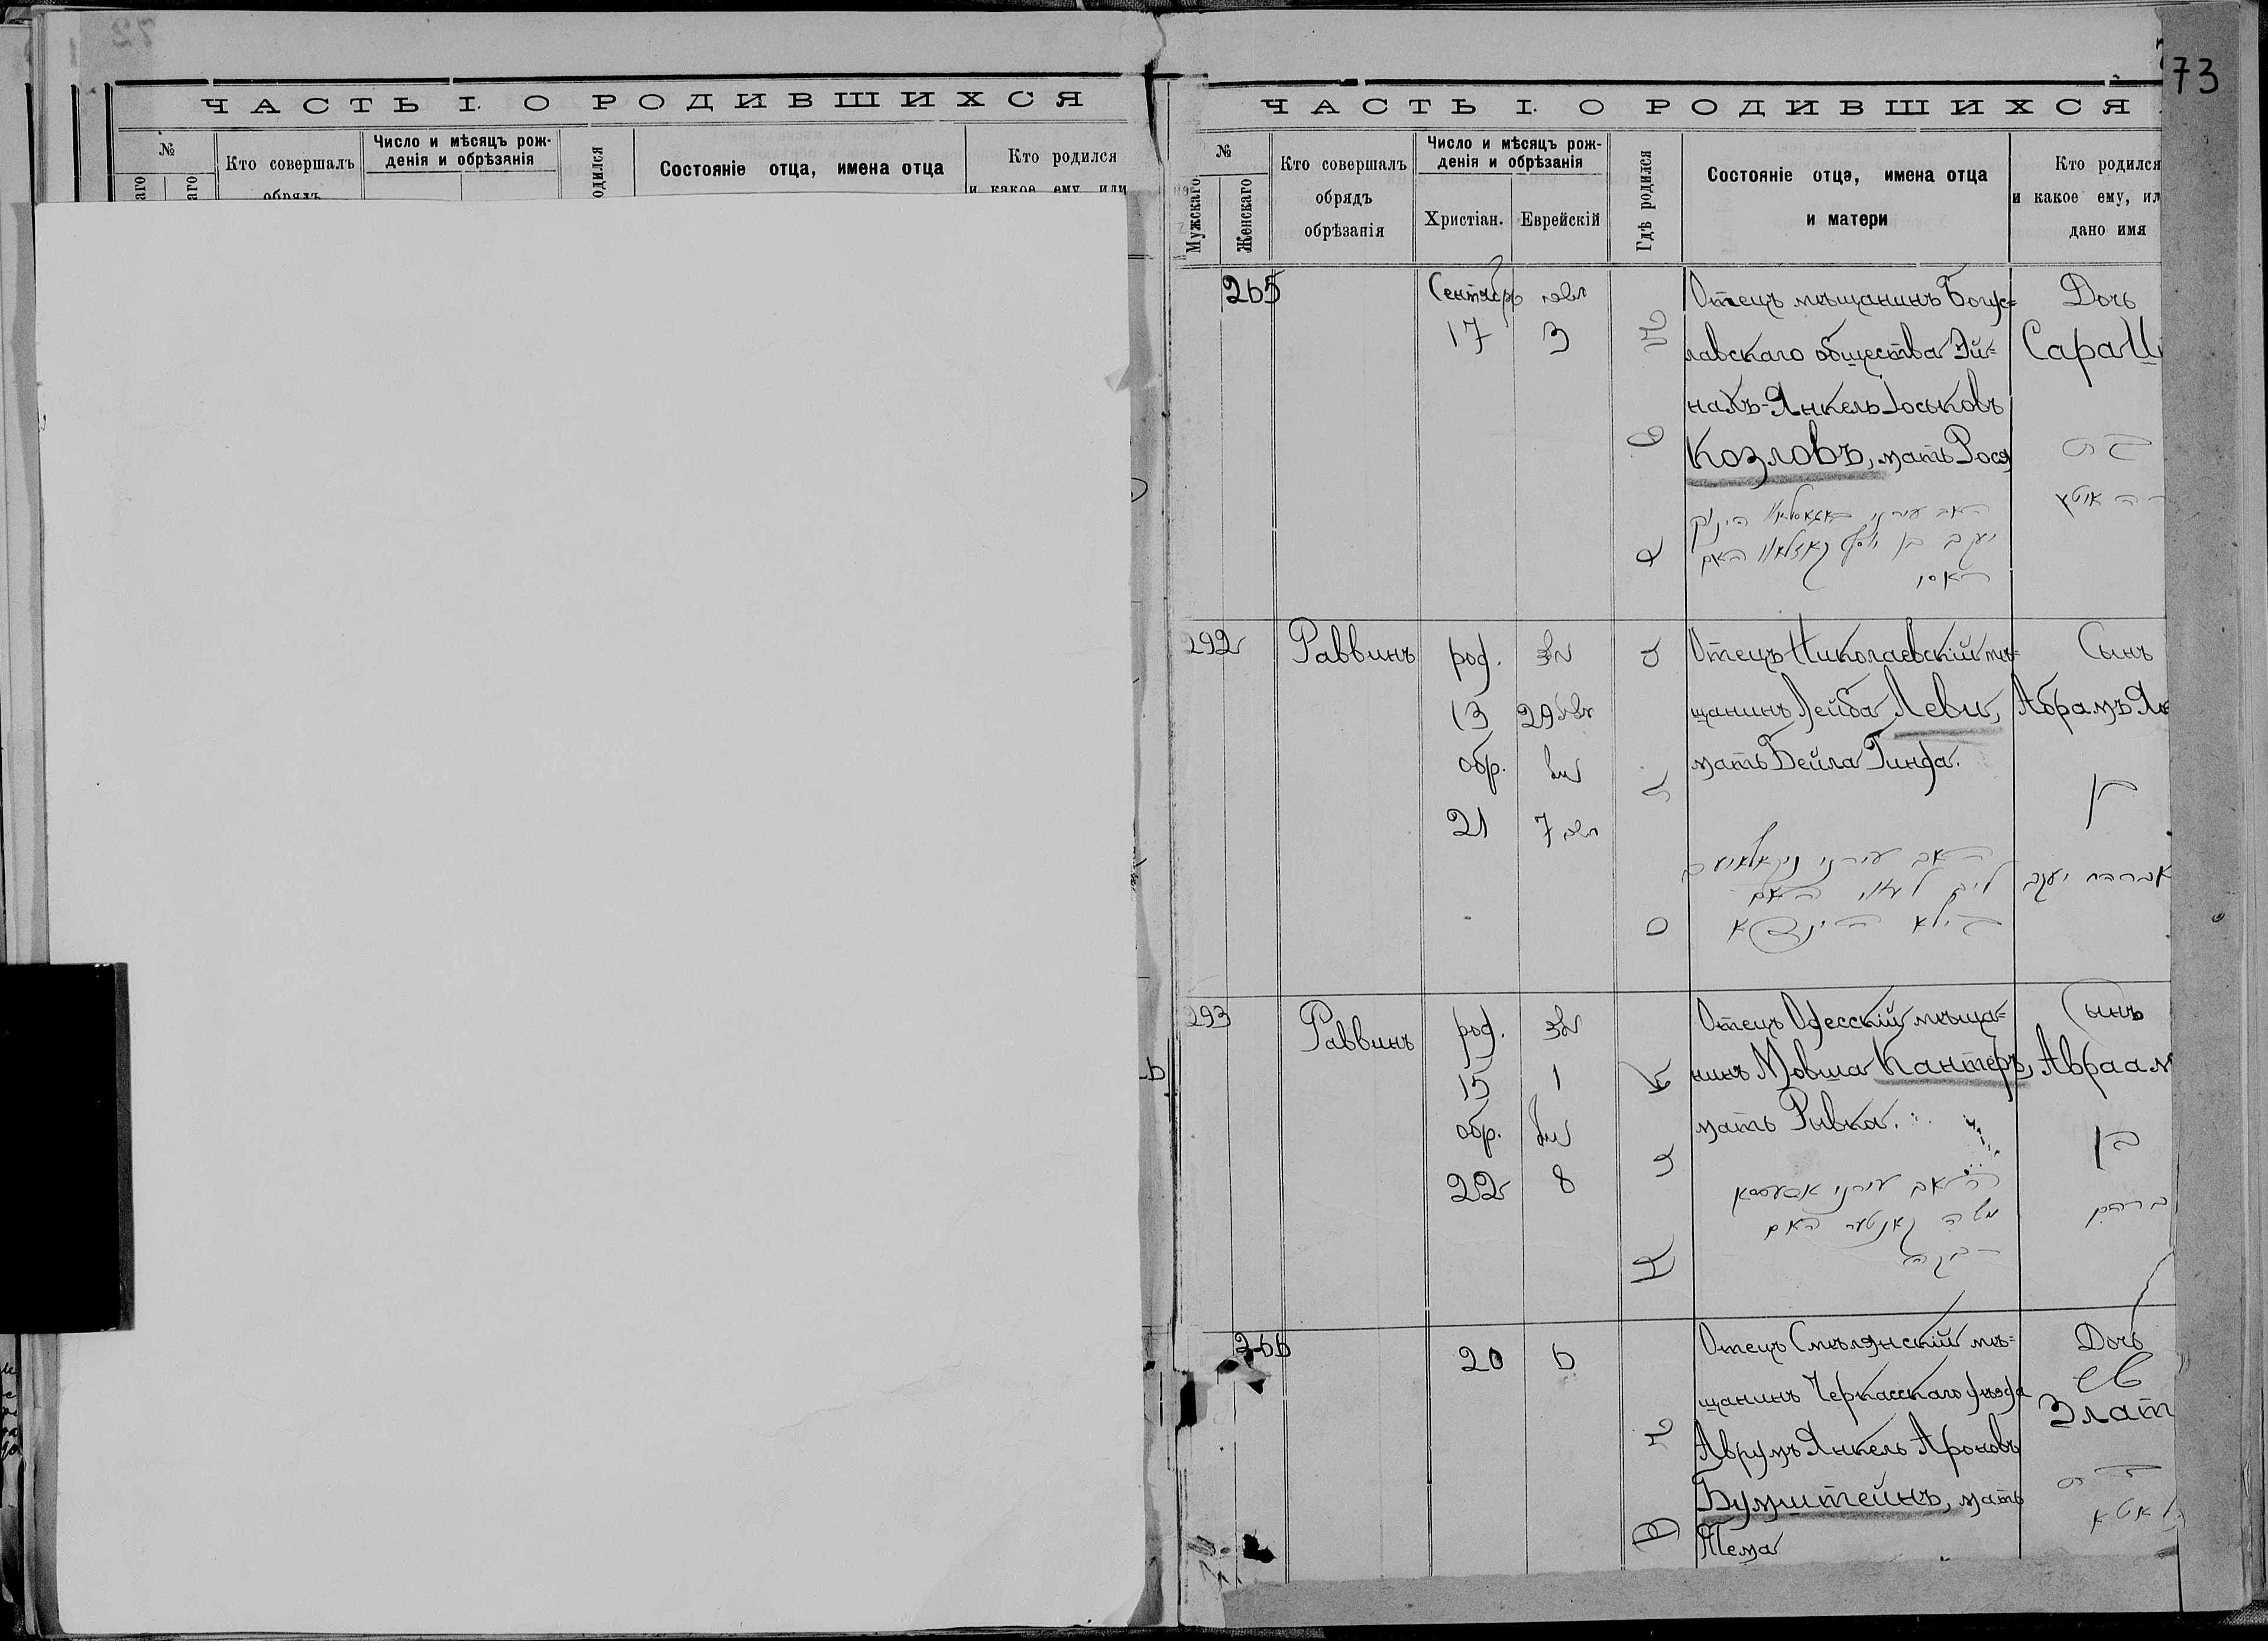 72
ЧАСТЬ I. О РОДИВШИХСЯ
№
Кто совершалъ
обрядъ
Число и мѣсяцъ рож-
денія и обрѣзанія
Состояніе отца, имена отца
Кто родился
и какое ему, или
73
ЧАСТЬ I. О РОДИВШИХСЯ
№
Мужскаго
Женскаго
Кто совершалъ
обрядъ
обрѣзанія
Число и мѣсяцъ рож-
денія и обрѣзанія
Христіан.
Еврейскій
Гдѣ родился
Состояніе отца, имена отца
и матери
Кто родился
и какое ему, ил
дано имя
265
Сентябрь
17
3
Отецъ мѣщанинъ Богус=
лавскаго общества Эй=
нахъ-Янкель Іоськовъ
Козловъ, мать Рося
יעקב בן יוסף קאזלאוו האם
ראסי
Дочь
Сара
בת
292
Раввинъ
род.
13
29
обр.
21
7
Отецъ Николаевскій мѣ=
щанинъ Лейба Леви,
мать Бейла Гинда.
האב עירני ניקאלאיעב
ליב לעווי האם
ביילא הינדא
Сынъ
Абрамъ Як
בן
אברהם יעקב
293
Раввинъ
род.
15
1
обр.
22
8
Отецъ Одесскій мѣща=
нинъ Мовша Кантеръ,
мать Рывка.
האב עירני אדעססא
משה קאנטער האם
רבקה
Сынъ
Авраам
בן
ברהם
266
20
6
Отецъ Смѣлянскій мѣ=
щанинъ Черкасскаго уѣзда
Аврумъ Янкель Ароновъ
Бумштейнъ, мать
Тема
Дочь
Злат
בת